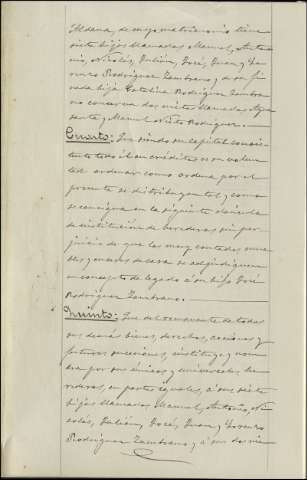 Aldana, de cuyo matrimonio tiene
siete hijos llamados Manuel, Anto-
nio, Nicolás, Julián, José, Juan y Lo-
renzo Rodríguez Zambrano y de su fi-
nada hija Catalina Rodríguez Zambra-
no conserva dos nietos llamados
y Manuel Nieto Rodríguez.
Cuarto: Que siendo su capital consis-
tente todo él en créditos es su volun-
tad ordenar como ordena por el
presente se distribuya tal y como
se consigna en la siguiente cláusula
de institución de herederos, sin per-
juicio de que los muy contados mue-
bles y enseres de casa se adjudiquen
en concepto de legado a su hijo José
Rodríguez Zambrano.
Quinto: Que del remanente de todos
sus demás bienes, derechos, acciones y
futuras sucesiones, instituye y nom-
bra por sus únicos y universales he-
rederos, en partes iguales, a sus siete
hijos llamados Manuel, Antonio, Ni-
colás, Julián, José, Juan y Lorenzo
Rodríguez Zambrano y a sus dos nie